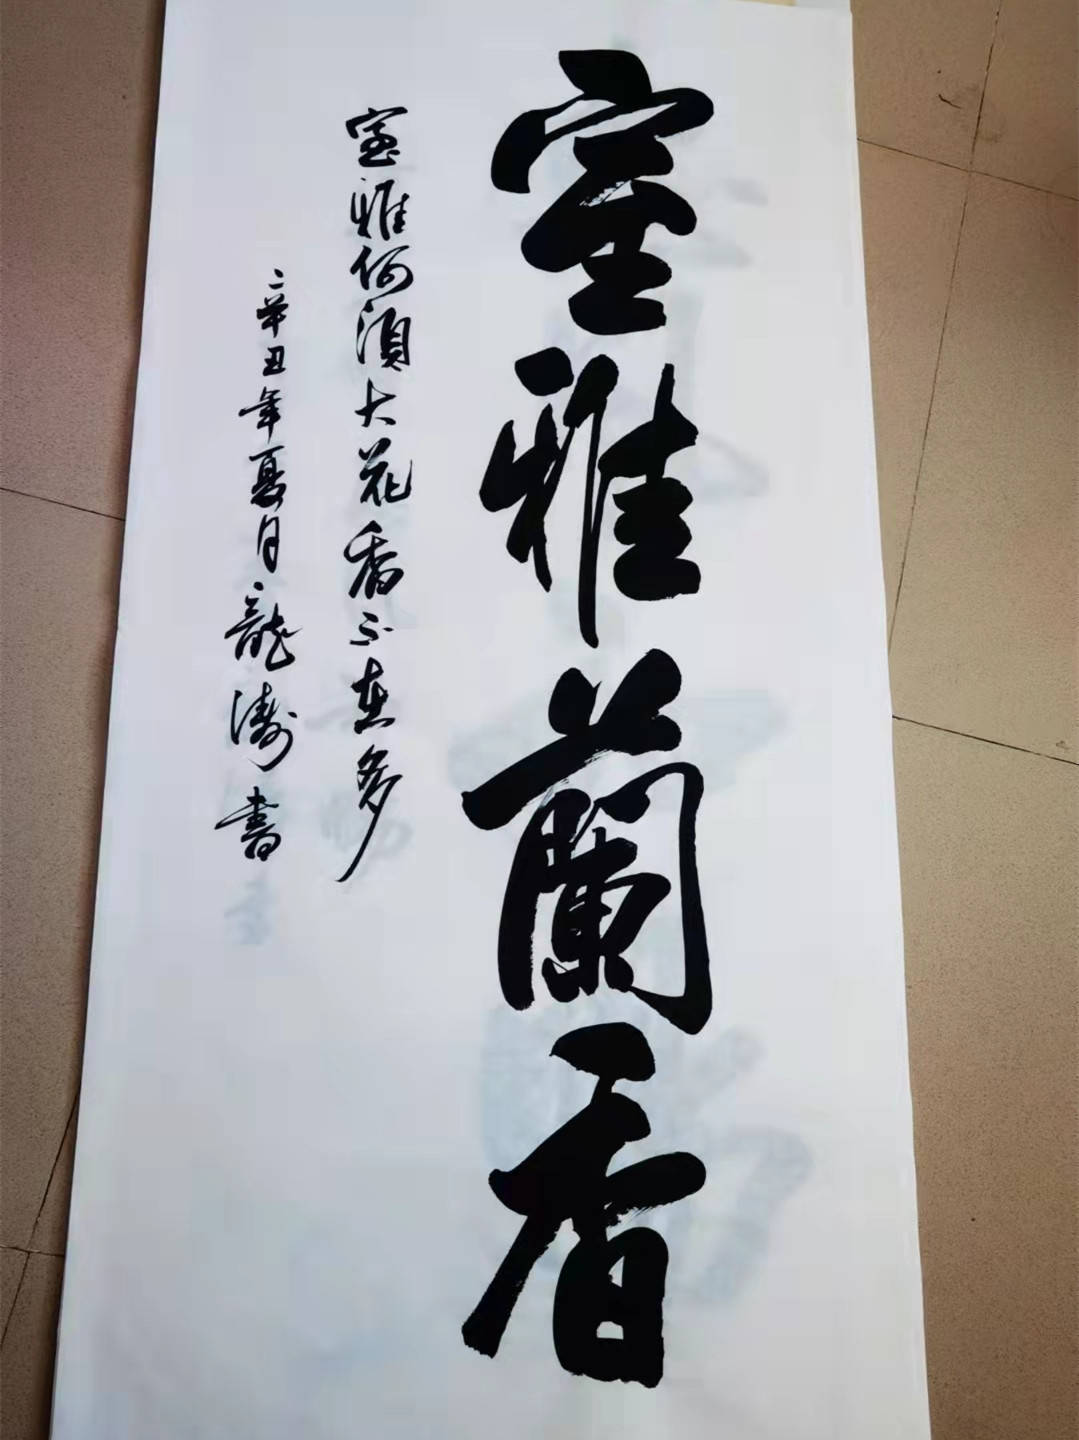 室雅蘭香
室雅何須大花香不在多
辛丑年夏月龍濤書